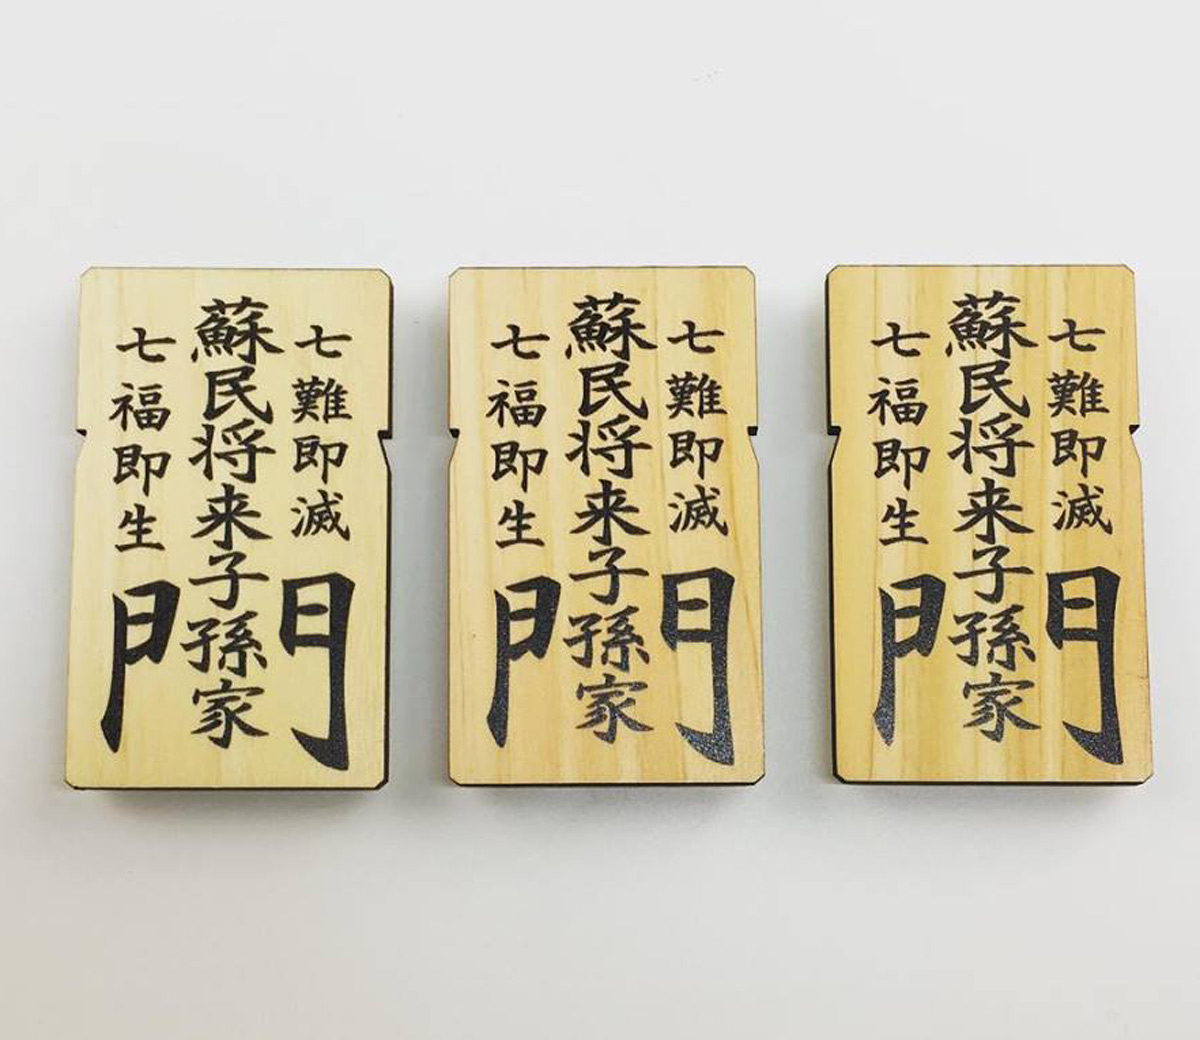 七難即滅
蘇民将来子孫家
七福即生
門
七難即滅
蘇民将来子孫家
七福即生
門
七難即滅
蘇民将来子孫家
七福即生
門